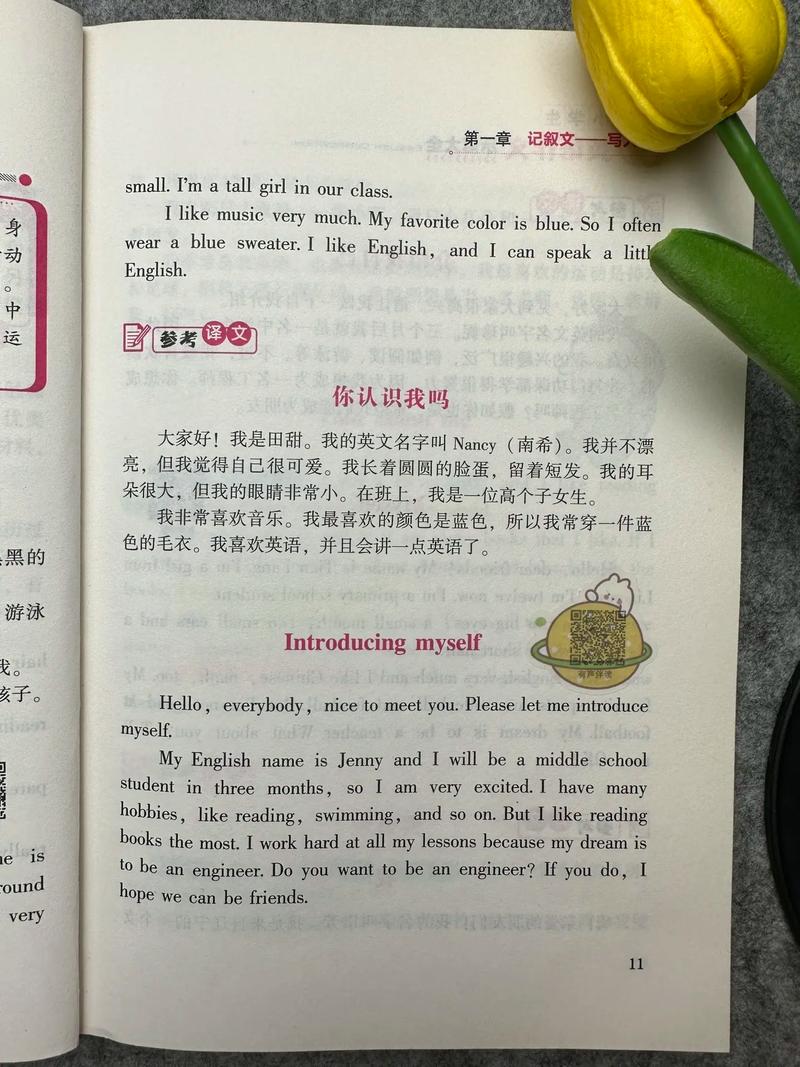 第一章 记叙文——写
small. I'm a tall girl in our class.
I like music very much. My favorite color is blue. So I often
wear a blue sweater. I like English, and I can speak a
English.
参考译文
你认识我吗
大家好！我是田甜。我的英文名字叫 Nancy（南希）。我并不漂
亮，但我觉得自己很可爱。我长着圆圆的脸蛋，留着短发。我的耳
朵很大，但我的眼睛非常小。在班上，我是一位高个子女生。
我非常喜欢音乐。我最喜欢的颜色是蓝色，所以我常穿一件蓝
色的毛衣。我喜欢英语，并且会讲一点英语了。
有声伴读
Introducing myself
Hello, everybody, nice to meet you. Please let me introduce
myself.
My English name is Jenny and I will be a middle school
student in three months, so I am very excited. I have many
hobbies, like reading, swimming, and so on. But I like reading
books the most. I work hard at all my lessons because my dream is
to be an engineer. Do you want to be an engineer? If you do, I
hope we can be friends.
11
身
动
。
中
运
黑的
游泳
我。
孩子。
is
very